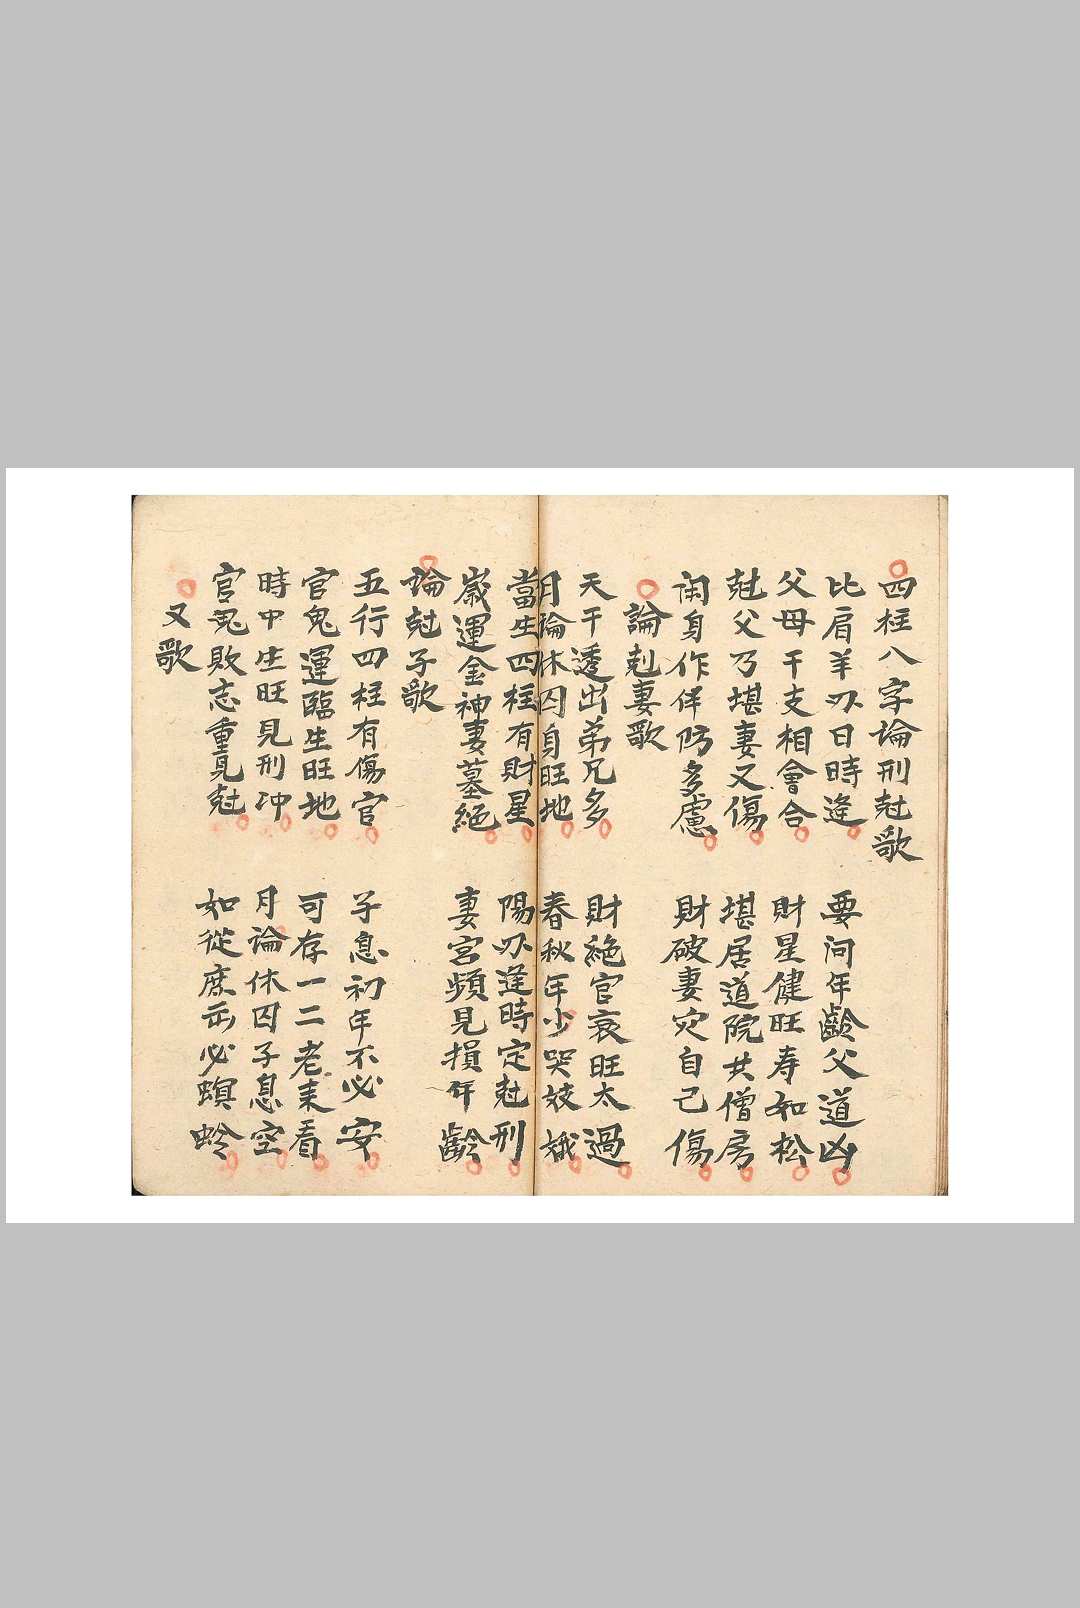 四柱八字論刑尅歌
比肩羊刃日時逢 要问年齡父道凶
父母干支相會合 財星健旺寿如松
尅父乃堪妻又傷 堪居道院共僧房
閑身作伴防多慮 財破妻灾自己傷
論剋妻歌
天干透出弟兄多 財絕官衰旺太過
月論休囚身旺地 春秋年少哭姣娥
當生四柱有財星 陽刃逢時定尅刑
嵗運金神妻墓絕 妻宮頻見損年齡
論尅子歌
五行四柱有傷官 子息初年不必安
官鬼運臨生旺地 可存一二老来看
時中生旺見刑冲 月論休囚子息空
官鬼敗志重見尅 如從庶出必螟蛉
又歌